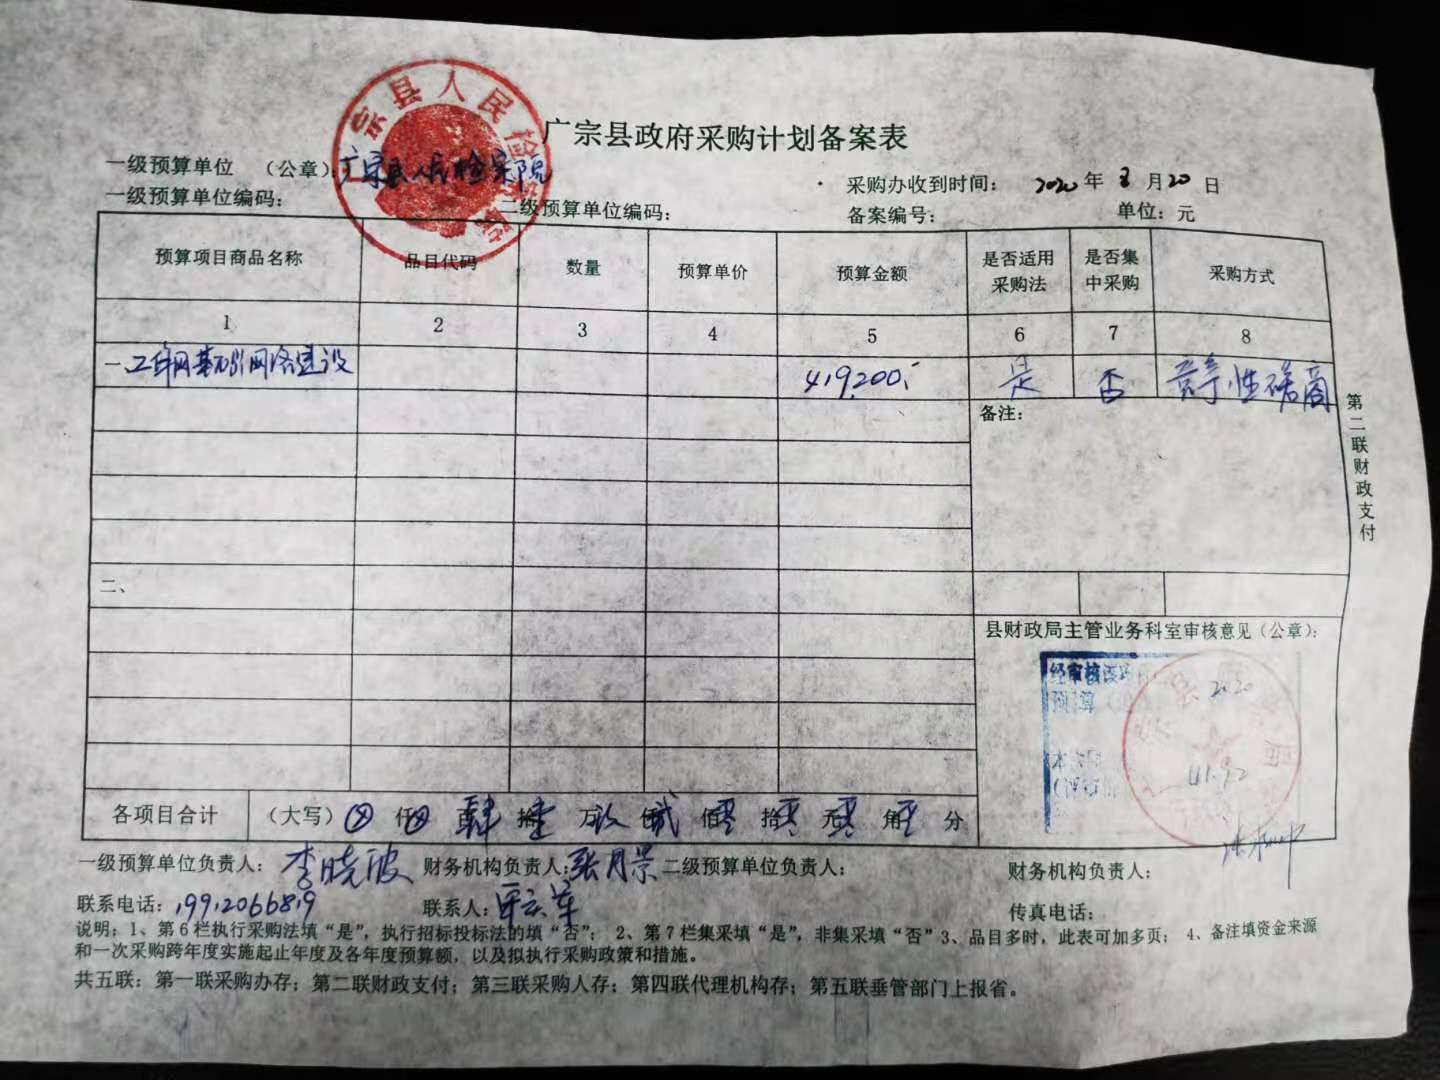 广宗县政府采购计划备案表
一级预算单位 （公章）：广宗县人民检察院
采购办收到时间： 2020 年 3 月 20 日
一级预算单位编码： 二级预算单位编码： 备案编号： 单位：元
宗县人民检察院
预算项目商品名称 品目代码 数量 预算单价 预算金额 是否适用采购法 是否集中采购 采购方式
1 2 3 4 5 6 7 8
一、工作网基础网络建设 419,200.- 是 否 竞争性磋商
备注：
第二联财政支付
二、
县财政局主管业务科室审核意见（公章）：
经审核该项
预算
2020
41.92
各项目合计 （大写）⊗ 仟⊗ 百肆 拾壹 万玖 仟贰 佰零 拾零 元零 角零 分
一级预算单位负责人：李晓波 财务机构负责人：张月景 二级预算单位负责人： 财务机构负责人：
联系电话：19912066819 联系人： 传真电话：
说明：1、第6栏执行采购法填“是”，执行招标投标法的填“否”；2、第7栏集采填“是”，非集采填“否”3、品目多时，此表可加多页；4、备注填资金来源
和一次采购跨年度实施起止年度及各年度预算额，以及拟执行采购政策和措施。
共五联：第一联采购办存；第二联财政支付；第三联采购人存；第四联代理机构存；第五联垂管部门上报省。